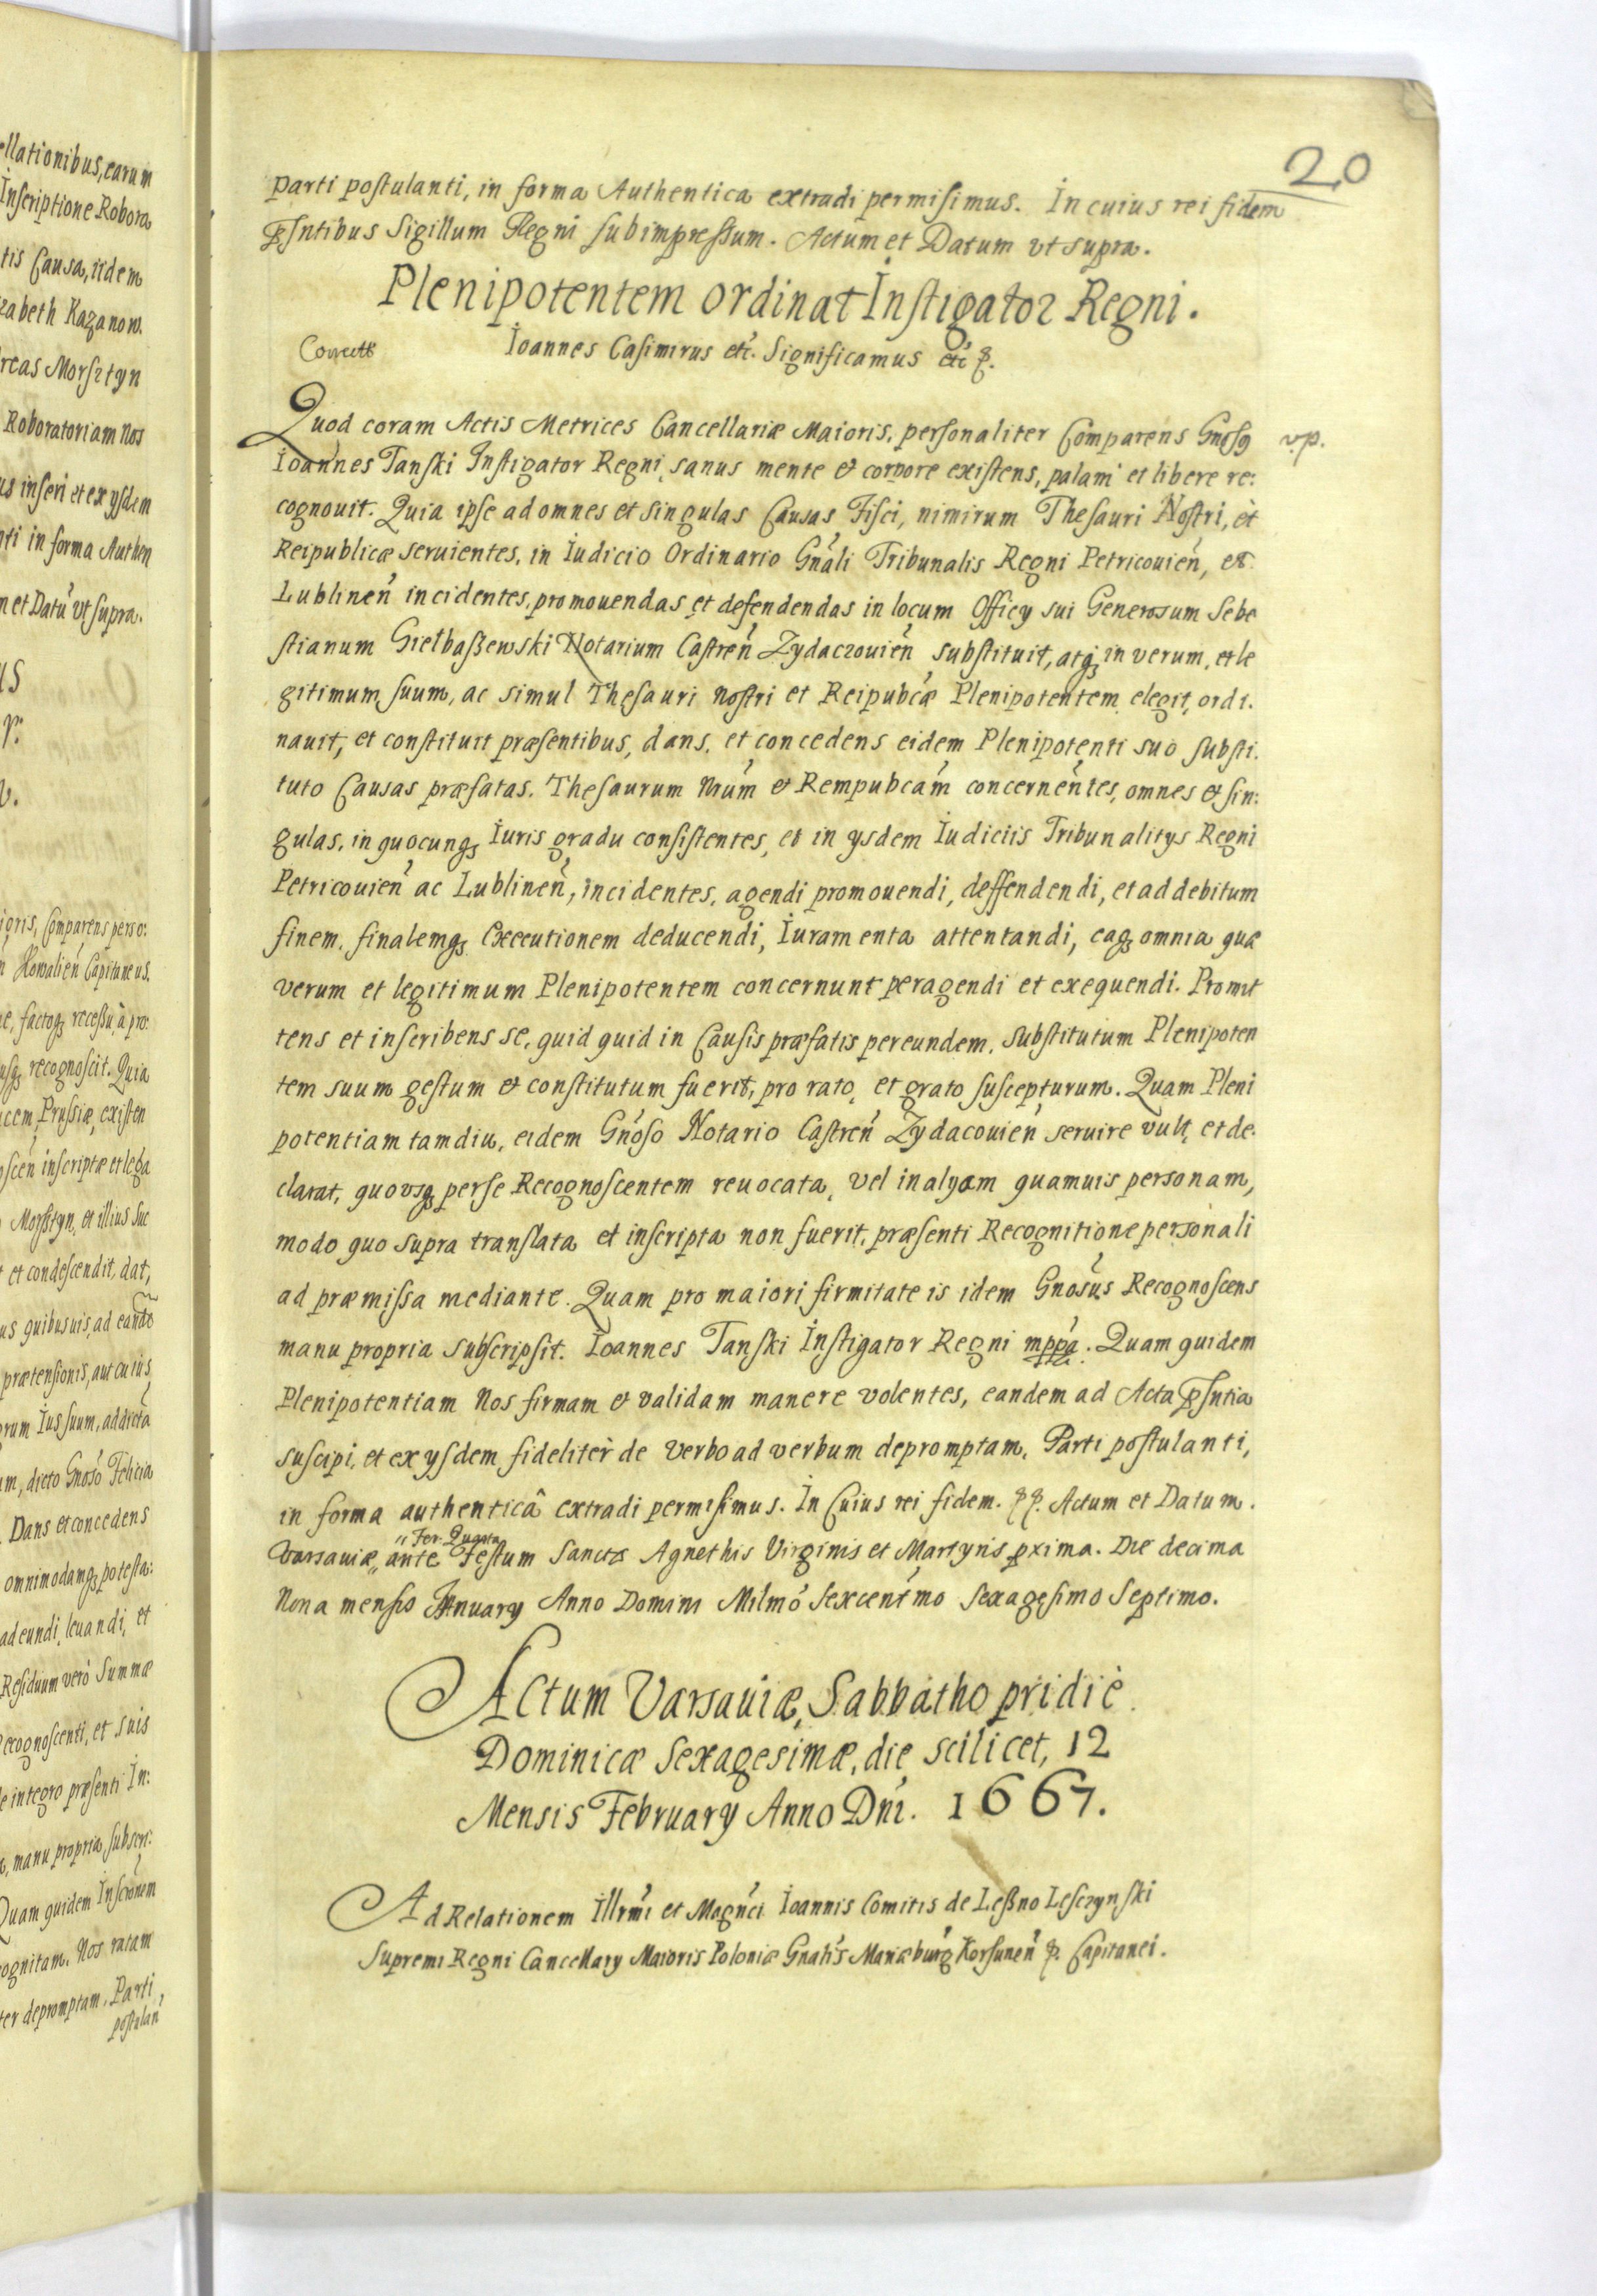 ellationibus, earum
Inscriptione Robora
tis Causa, iidem
zabeth Kazanow.
reas Morsztyn
Roboratoriam Nos
us inseri et ex ysdem
nti in forma Authen
n et Datu vt supra.
us
igris, Comparens perso:
Capitaneus.
e, factoq recessu a pro:
usq recognoscit. Quia
ucem Prussiæ, existen
oscen inscriptæ et lega
Morsztyn, et illius Suc
t et condescendit, dat,
us quibusuis, ad eand
prætensionis, aut cuius
orum Ius suum, ad dicta
um, dicto Gnoso Felicia
Dans et concedens
omnimodamq potesta:
adeundi, leuandi, et
Residuum verò Summæ
Recognoscenti, et suis
e integro præsenti In:
a, manu propria subscri:
Quam quidem Inscrionem
ognitam. Nos ratam
ter depromptam. Parti
postulan
20
parti postulanti, in forma Authentica extradi permisimus. In cuius rei fidem
Psntibus Sigillum Regni subimpressum. Actum et Datum vt supra.
Plenipotentem ordinat Instigator Regni.
Correcte
Ioannes Casimirus etc. Significamus etc p.
Quod coram Actis Metrices Cancellariæ Maioris, personaliter Comparens Gnosq v.p.
Ioannes Tanski Instigator Regni, sanus mente et corpore existens, palam et libere re:
cognouit. Quia ipse ad omnes et singulas Causas Fisci, nimirum Thesauri Nostri, èt
Reipublicæ seruientes, in Iudicio Ordinario Gnali Tribunalis Regni Petricouien, et
Lublinen incidentes, promouendas et defendendas in locum Officy sui Generosum Sebe
stianum Gielbaszewski Notarium Castren Zydaczouien substituit, atq in verum, et le
gitimum suum, ac simul Thesauri nostri et Reipubcæ Plenipotentem elegit, ordi.
nauit, et constituit præsentibus, dans, et concedens eidem Plenipotenti suo substi.
tuto Causas præfatas. Thesaurum Nrum et Rempubcam concernentes, omnes et sin:
gulas, in quocunq Iuris gradu consistentes, et in ysdem Iudiciis Tribunalitys Regni
Petricouien ac Lublinen, incidentes, agendi promouendi, deffendendi, et ad debitum
finem, finalemq Executionem deducendi, Iuramenta attentandi, eaq omnia quæ
verum et legitimum Plenipotentem concernunt peragendi et exequendi. Promit
tens et inscribens se, quid quid in Causis præfatis per eundem, substitutum Plenipoten
tem suum gestum et constitutum fuerit, pro rato, et grato suscepturum. Quam Pleni
potentiam tamdiu, eidem Gnoso Notario Castren Zydacouien seruire vult, et de.
clarat, quovsq per se Recognoscentem reuocata, vel in alyam quamuis personam,
modo quo supra translata et inscripta non fuerit, præsenti Recognitione personali
ad præmissa mediante. Quam pro maiori firmitate is idem Gnosus Recognoscens
manu propria subscripsit. Ioannes Tanski Instigator Regni mppa. Quam quidem
Plenipotentiam Nos firmam et validam manere volentes, eandem ad Acta psntia
suscipi, et ex ysdem fideliter de verbo ad verbum depromptam, Parti postulanti,
in forma authenticâ extradi permisimus. In Cuius rei fidem. pp. Actum et Datum.
Fer. Quarta
Varsauiæ ante Festum Sanctæ Agnethis Virginis et Martyris pxima. Die decima
Nona mensis January Anno Domini Milmo Sexcentmo Sexagesimo Septimo.
Actum Varsauiæ, Sabbatho pridiè
Dominicæ Sexagesimæ, die scilicet, 12
Mensis February Anno Dni. 1667.
Ad Relationem Illrmi et Magnci Ioannis Comitis de Leszno Lesczynski
Supremi Regni Cancellary Maioris Poloniæ Gnalis Mariæburg Korsunen p. Capitanei.